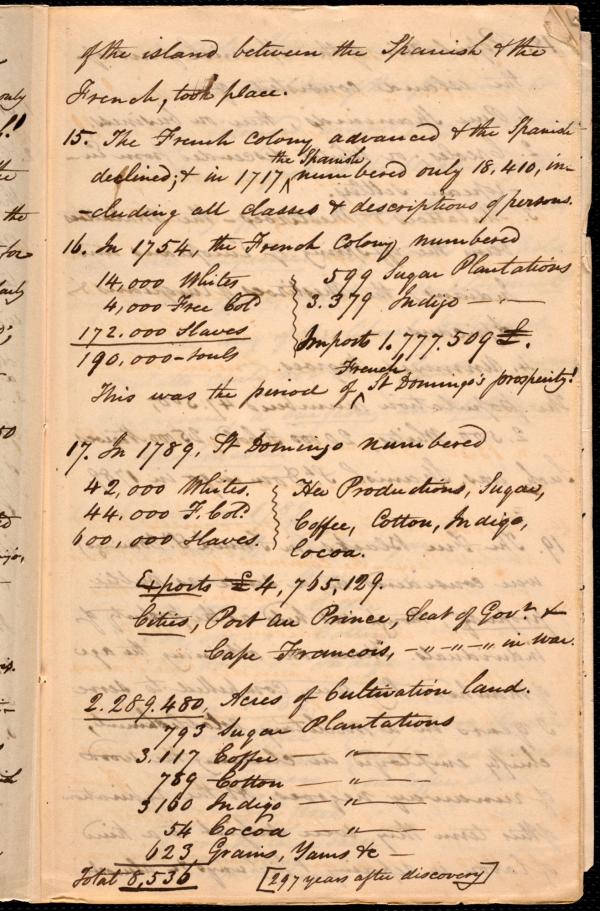 of the island between the Spanish & the
French, took place.
15. The French Colony advanced & the Spanish
declined; & in 1717, the Spanish numbered only 18,410, in-
-cluding all classes & descriptions of persons.
16. In 1754, the French Colony numbered
14,000 Whites 599 Sugar Plantations
4,000 Free Cold 3.379 Indigo — " —
172.000 Slaves Imports 1.777.509 £.
190,000 - souls
This was the period of French St Domingo's prosperity!
17. In 1789, St Domingo numbered
42,000 Whites. Her Productions, Sugar,
44.000 F. Cold. Coffee, Cotton, Indigo,
600,000 Slaves. Cocoa.
Exports £4,765,129.
Cities, Port au Prince, Seat of Govt. &
Cape Francois, — " — " — " in War.
2.289.480, Acres of Cultivation land.
793 Sugar Plantations
3.117 Coffee — " —
789 Cotton — " —
3160 Indigo — " —
54 Cocoa — " —
623, Grains, Yams &c —
Total 8,536 [297 years after discovery]